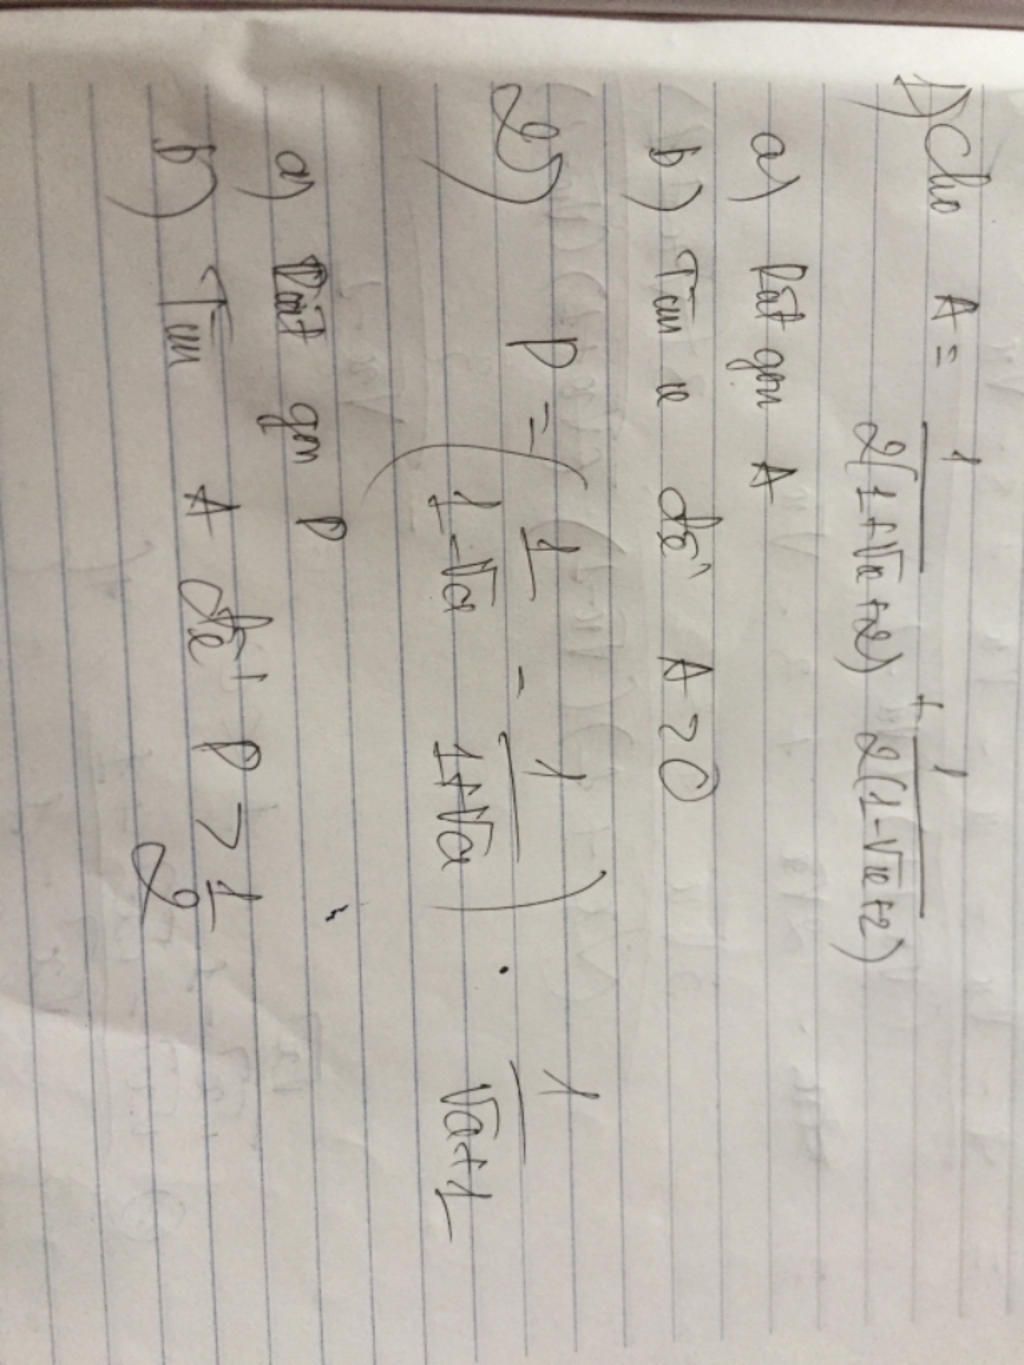 1) Cho A = 1/2(1+√x+2) + 1/2(1-√x+2)
a) Rút gọn A
b) Tìm x để A > 0
2) P = (1/1-√a - 1/1+√a) . 1/√a+1
a) Rút gọn P
b) Tìm A để P > 1/2